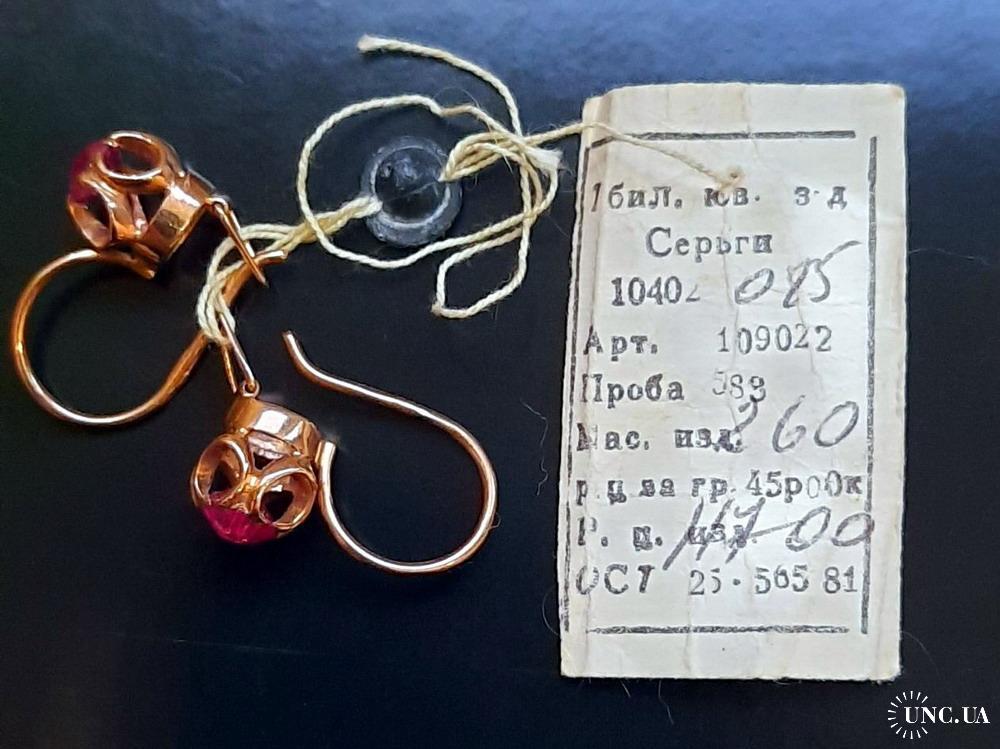 Тбил. юв. з-д
Серьги
10402 045
Арт. 109022
Проба 583
Мас. изд. 260
р.ц за гр. 45р00к
Р. ц. изд. 117-00
ОСТ 25·565 81
UNC.UA